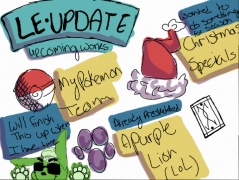 LE:UPDATE
upcoming works
wanted to
do something
for season
Christmas
Specials
My Pokemon
Team
Will finish
This up when
I have time
Already Established
A Purple
Lion
(LOL)